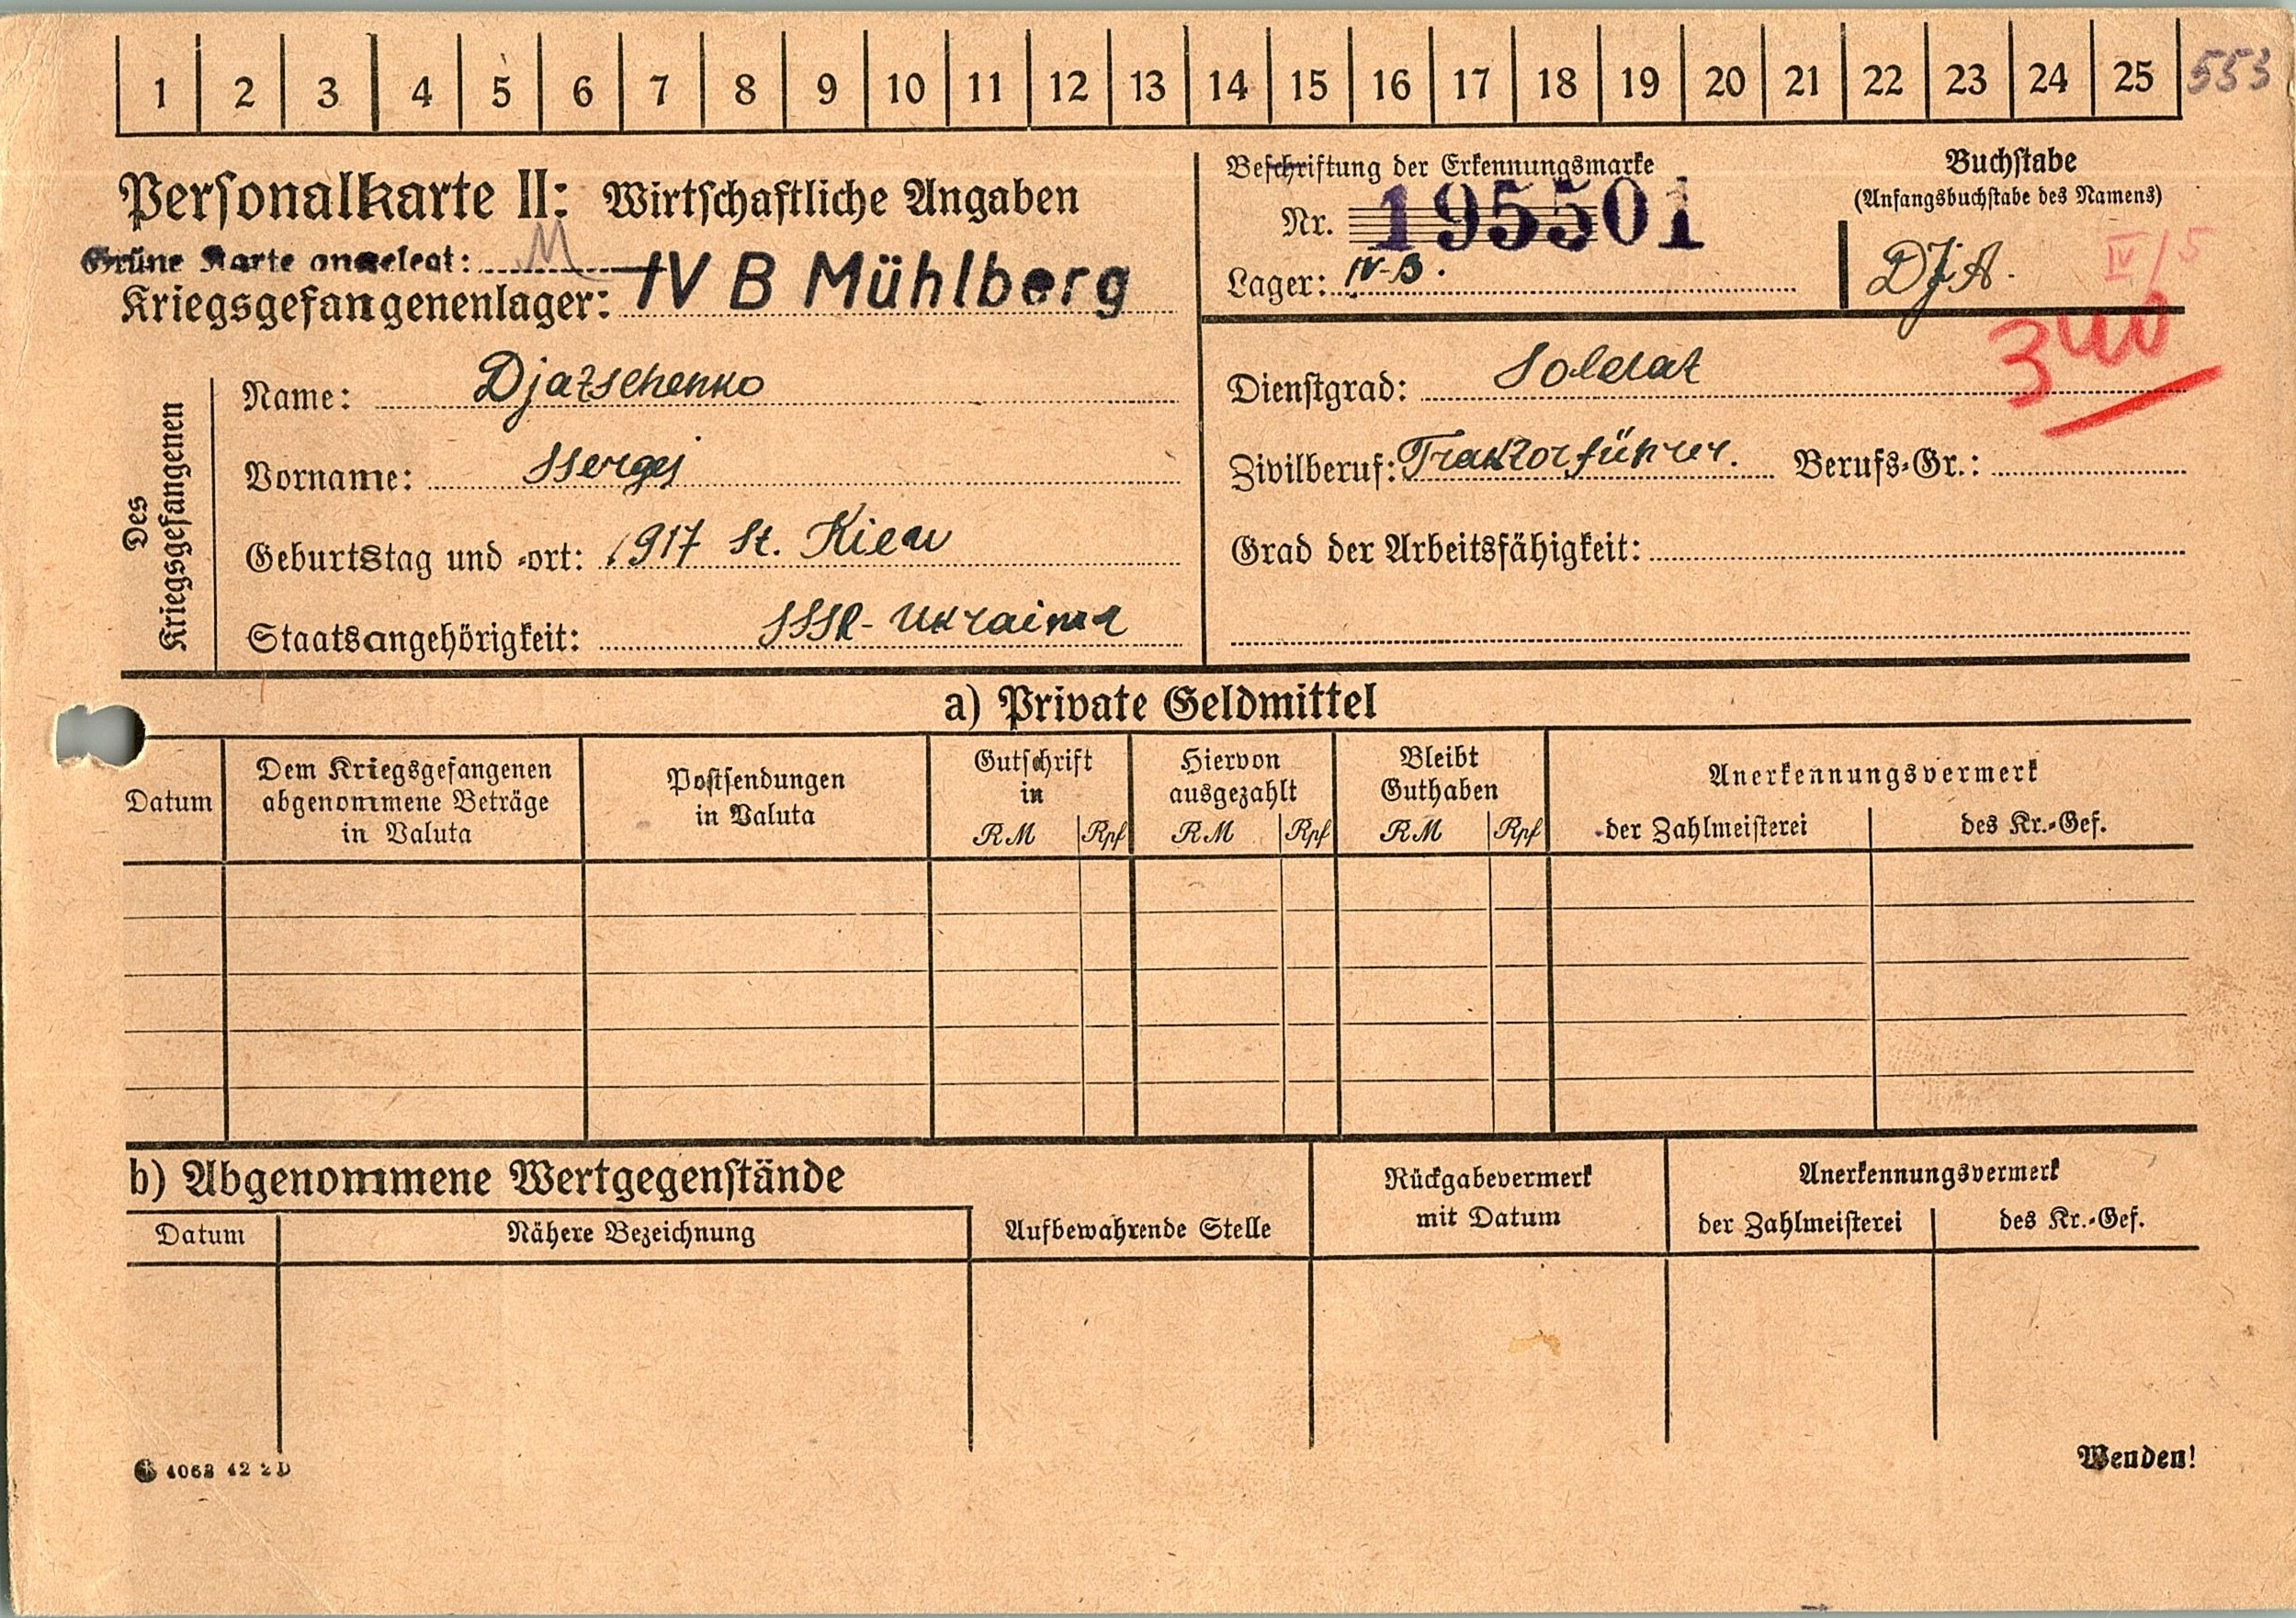 1 2 3 4 5 6 7 8 9 10 11 12 13 14 15 16 17 18 19 20 21 22 23 24 25 553
Personalkarte II: Wirtschaftliche Angaben
Grüne Karte angelegt: M
Kriegsgefangenenlager: IV B Mühlberg
Beschriftung der Erkennungsmarke
Nr. 195501
Lager: IV-B.
Buchstabe
(Anfangsbuchstabe des Namens)
DJA.
IV/5
340
Des
Kriegsgefangenen
Name: Djatschenko
Vorname: Ssergej
Geburtstag und -ort: 1917 St. Kiew
Staatsangehörigkeit: SSSR-Ukraina
Dienstgrad: Soldat
Zivilberuf: Traktorführer. Berufs-Gr.:
Grad der Arbeitsfähigkeit:
a) Private Geldmittel
Datum
Dem Kriegsgefangenen
abgenommene Beträge
in Valuta
Postsendungen
in Valuta
Gutschrift
in
RM Rpf
Hiervon
ausgezahlt
RM Rpf
Bleibt
Guthaben
RM Rpf
Anerkennungsvermerk
der Zahlmeisterei des Kr.-Gef.
b) Abgenommene Wertgegenstände
Datum Nähere Bezeichnung
Aufbewahrende Stelle
Rückgabevermerk
mit Datum
Anerkennungsvermerk
der Zahlmeisterei des Kr.-Gef.
4063 42 2 D
Wenden!